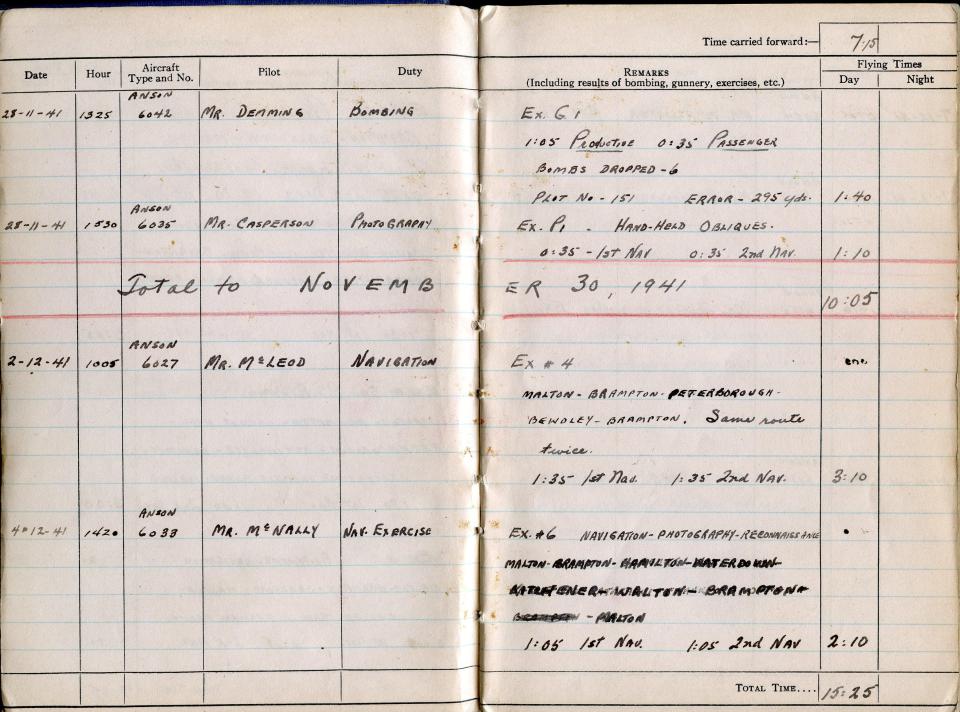 Time carried forward:— 7:15
Date Hour Aircraft Type and No. Pilot Duty REMARKS (Including results of bombing, gunnery, exercises, etc.) Flying Times Day Night
28-11-41 1325 ANSON 6042 MR. DEMMING BOMBING EX. G 1
1:05 PRODUCTIVE 0:35 PASSENGER
BOMBS DROPPED - 6
PLOT NO - 151 ERROR - 295 yds. 1:40
28-11-41 1530 ANSON 6035 MR. CASPERSON PHOTOGRAPHY EX. P1 - HAND-HELD OBLIQUES.
0:35 - 1st NAV 0:35 2nd NAV. 1:10
Total to NOVEMBER 30, 1941 10:05
2-12-41 1005 ANSON 6027 MR. McLEOD NAVIGATION EX # 4
MALTON - BRAMPTON - PETERBOROUGH -
BEWDLEY - BRAMPTON. Same route
twice.
1:35 1st Nav. 1:35 2nd NAV. 3:10
4-12-41 1420 ANSON 6033 MR. McNALLY NAV. EXERCISE EX. #6 NAVIGATION - PHOTOGRAPHY - RECONNAISSANCE
MALTON - BRAMPTON - HAMILTON - WATERDOWN -
BRAMPTON
- MALTON
1:05 1st NAV. 1:05 2nd NAV 2:10
TOTAL TIME.... 15:25